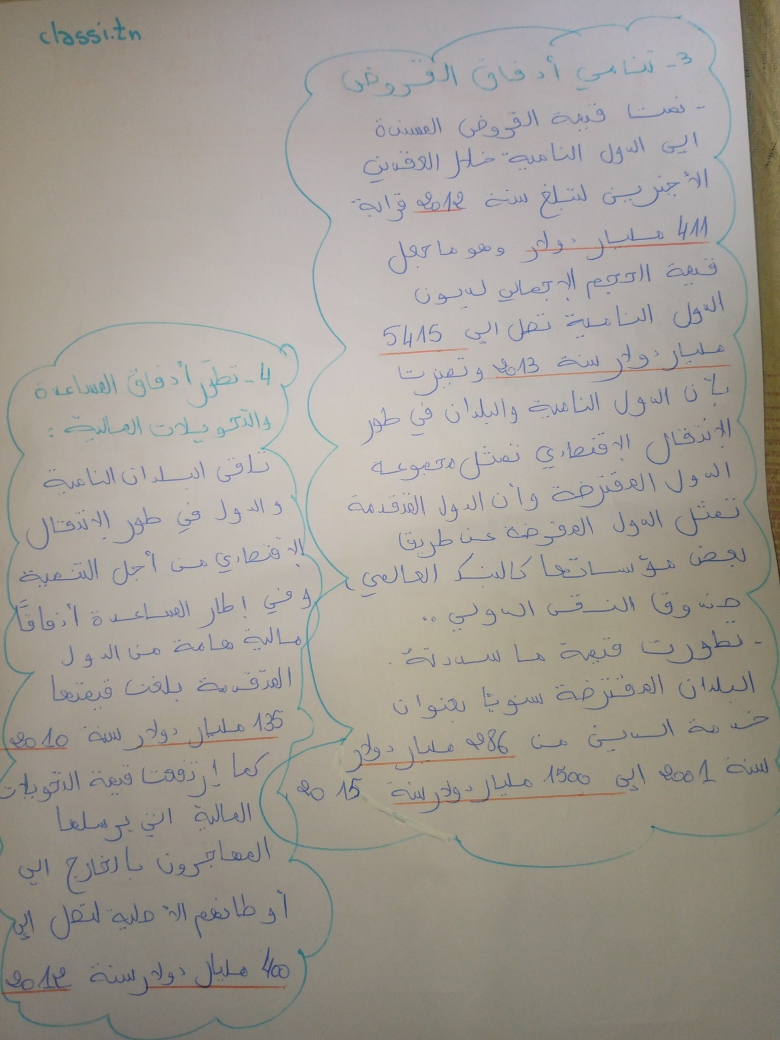 classi.tn
3- تنامي أدفاق القروض
- نمت قيمة القروض المسندة
الى الدول النامية خلال العقدين
الأخيرين لتبلغ سنة 2012 قرابة
411 مليار دولار وهو ما جعل
قيمة الحجم الإجمالي لديون
الدول النامية تصل الى 5415
مليار دولار سنة 2013 وتميزت
بأن الدول النامية والبلدان في طور
الإنتقال الإقتصادي تمثل مجموعة
الدول المقترضة وأن الدول المتقدمة
تمثل الدول المقرضة عن طريق
بعض مؤسساتها كالبنك العالمي،
صندوق النقد الدولي ..
- تطورت قيمة ما سددته
البلدان المقترضة سنويا بعنوان
خدمة الدين من 286 مليار دولار
سنة 2001 الى 1500 مليار دولار سنة 2015
4- تطور أدفاق المساعدة
والتحويلات المالية :
تلقى البلدان النامية
والدول في طور الإنتقال
الإقتصادي من أجل التنمية
وفي إطار المساعدة أدفاقا
مالية هامة من الدول
المتقدمة بلغت قيمتها
135 مليار دولار سنة 2010
كما إرتفعت قيمة التحويلات
المالية التي يرسلها
المهاجرون بالخارج الى
أوطانهم الأصلية لتصل الى
400 مليار دولار سنة 2012